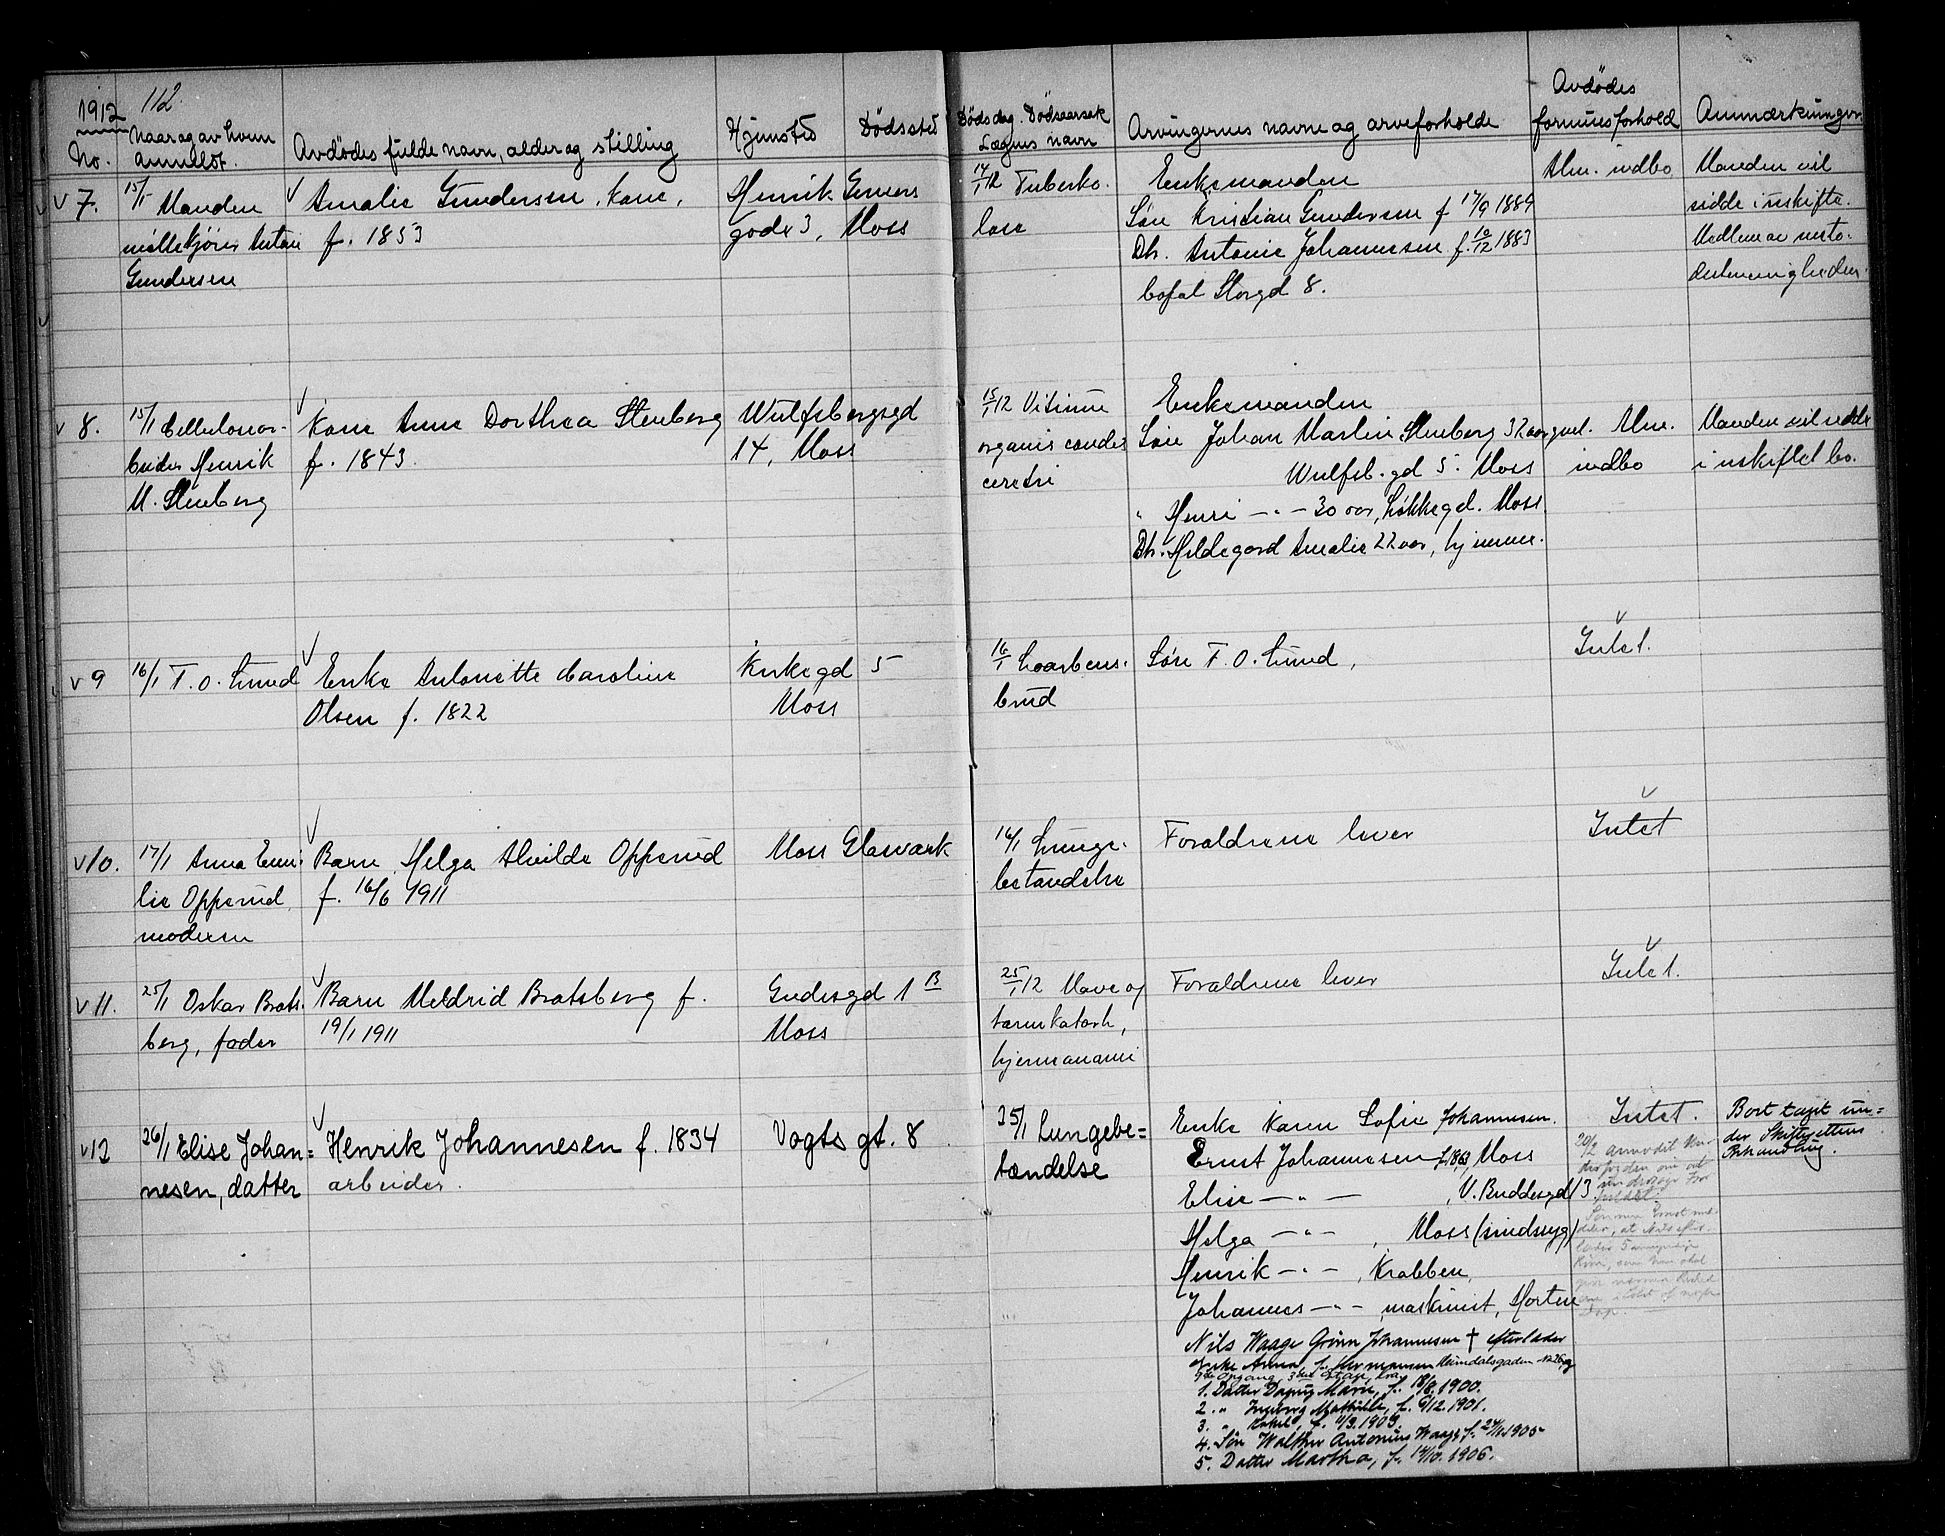 1912
112
No.
Naar og av hvem anmeldt.
Avdødes fulde navn, alder og stilling
Hjemsted
Dødssted
Dødsdag. Dødsaarsak
Lægens navn
Arvingernes navne og arveforholde
Avdødes
formuesforhold
Anmærkninger
v 7.
15/1 Manden
møllekjører Anton
Gundersen
Amalie Gundersen, kone,
f. 1853
Henrik Gerners
gade 3, Moss
14/1 12 Tuberku-
lose
Enkemanden
Søn Kristian Gundersen f 17/9 1889
Dtr. Antonie Johannesen f. 10/12 1883
bofat Storgd 8.
Alm. indbo
Manden vil
sidde i uskifte.
v 8.
15/1 Cellulosear-
beider Henrik
M. Stenberg
Kone Anne Dorthea Stenberg
f. 1843.
Wulfsbergsgd
14, Moss
15/1 12 Vitium
organis
Enkemanden
Søn Johan Martin Stenberg 32 aar gml.
Wulfsb. gd 5. Moss
" Henri - " - 30 aar, Løkkegd. Moss.
Dtr. Hildegard Amalie 22 aar, hjemme.
Alm.
indbo
Manden vil sidde
i uskiftet bo.
v 9
16/1 T. O. Lund
Enke Antonette Caroline
Olsen f. 1822
Kirkegd 5
Moss
16/1 Laarbens-
brud
Søn T. O. Lund,
Intet.
v 10.
17/1 Anna Emi-
lie Opperud
moderen
Barn Helga Alvilde Opperud
f. 16/6 1911
Moss Glasværk
16/1 Lunge-
betændelse
Forældrene lever
Intet
v 11.
25/1 Oskar Brats-
berg, fader
Barn Meldrid Bratsberg f.
19/1 1911
Gudesgd 1 B
Moss
25/1 12 Mave og
tarmkatarh,
hjerneanæmi
Forældrene lever
Intet.
v 12
26/1 Elise Johan=
nesen, datter
Henrik Johannesen f. 1834
arbeider.
Vogts gt. 8
25/1 Lungebe=
tændelse
Enke Karen Sofie Johannesen.
Ernst Johannesen f. 1863, Moss
Elise - " - , V. Buddesgd 13
Helga - " - , Moss (sindssyg)
Henrik - " - , Krabben,
Johannes - " - , maskinist, Horten
Nils Waage Grønn Johannesen † efterlader
Enke Anna, f. Hermansen Heimdalsgaden
1. Datter Dagny Marie, f. 18/8. 1900.
2. " Ingeborg Mathilde, f. 9/12. 1901.
3. " Rakel, f. 11/3. 1903.
4. Søn Walther Antonius Waage, f. 24/11 1905
5. Datter Martha, f. 14/10. 1906.
Intet.
Bort tagt un=
der Skifterettens
Behandling.